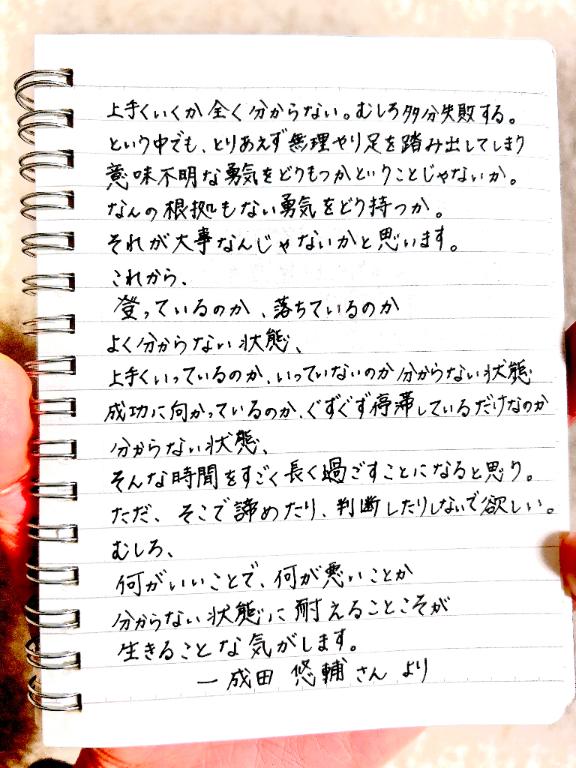 上手くいくか全く分からない。むしろ多分失敗する。
という中でも、とりあえず無理やり足を踏み出してしまう
意味不明な勇気をどうもつかということじゃないか。
なんの根拠もない勇気をどう持つか。
それが大事なんじゃないかと思います。
これから、
登っているのか、落ちているのか
よく分からない状態、
上手くいっているのか、いっていないのか分からない状態
成功に向かっているのか、ぐずぐず停滞しているだけなのか
分からない状態、
そんな時間をすごく長く過ごすことになると思う。
ただ、そこで諦めたり、判断したりしないで欲しい。
むしろ、
何がいいことで、何が悪いことか
分からない状態に耐えることこそが
生きることな気がします。
ー成田 悠輔さん より